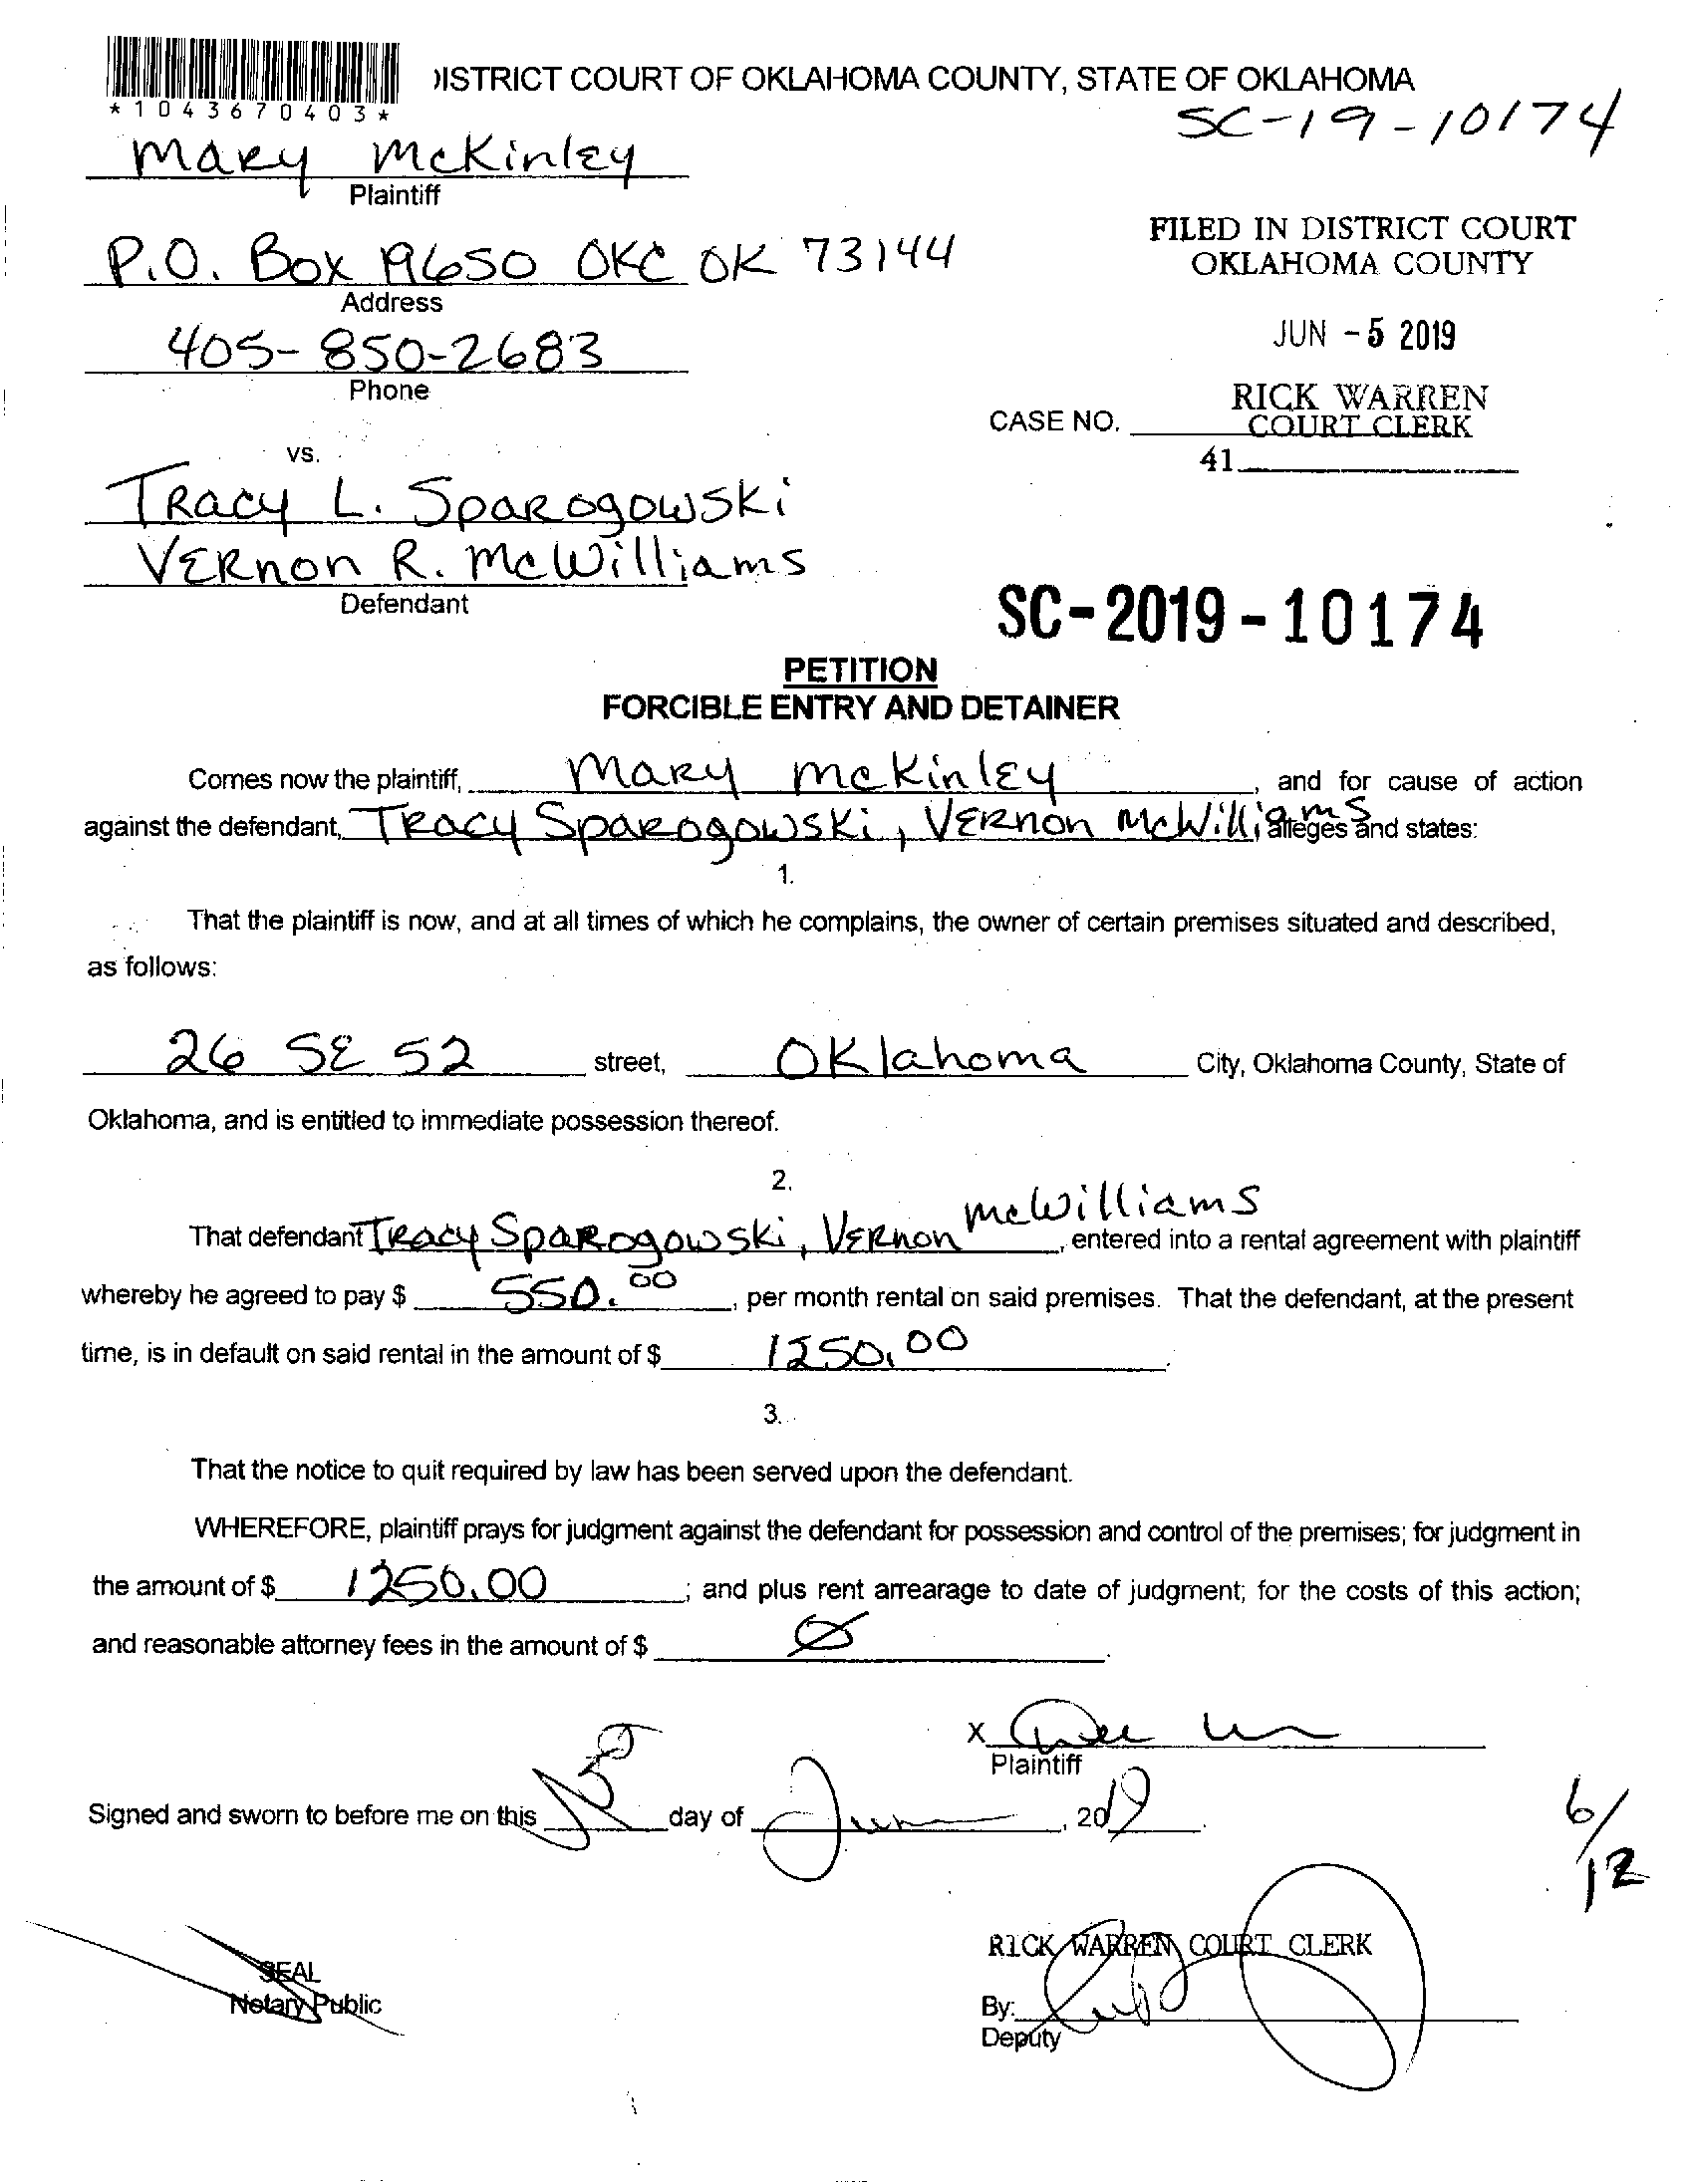 *1043670403*
)ISTRICT COURT OF OKLAHOMA COUNTY, STATE OF OKLAHOMA
SC-19-10174
Mary McKinley
Plaintiff
P.O. Box 19650 OKC OK 73144
Address
405-850-2683
Phone
FILED IN DISTRICT COURT
OKLAHOMA COUNTY
JUN - 5 2019
RICK WARREN
COURT CLERK
CASE NO.
41
vs.
Tracy L. Sparogowski
Vernon R. McWilliams
Defendant
SC-2019-10174
PETITION
FORCIBLE ENTRY AND DETAINER
Comes now the plaintiff, Mary McKinley, and for cause of action
against the defendant, Tracy Sparogowski, Vernon McWilliams alleges and states:
1.
That the plaintiff is now, and at all times of which he complains, the owner of certain premises situated and described,
as follows:
26 SE 52 street, Oklahoma City, Oklahoma County, State of
Oklahoma, and is entitled to immediate possession thereof.
2.
That defendant Tracy Sparogowski, Vernon McWilliams, entered into a rental agreement with plaintiff
whereby he agreed to pay $ 550.00, per month rental on said premises. That the defendant, at the present
time, is in default on said rental in the amount of $ 1250.00.
3.
That the notice to quit required by law has been served upon the defendant.
WHEREFORE, plaintiff prays for judgment against the defendant for possession and control of the premises; for judgment in
the amount of $ 1250.00; and plus rent arrearage to date of judgment; for the costs of this action;
and reasonable attorney fees in the amount of $ Ø.
X
Plaintiff
Signed and sworn to before me on this 5 day of June, 2019.
6/12
SEAL
Notary Public
RICK WARREN COURT CLERK
By:
Deputy